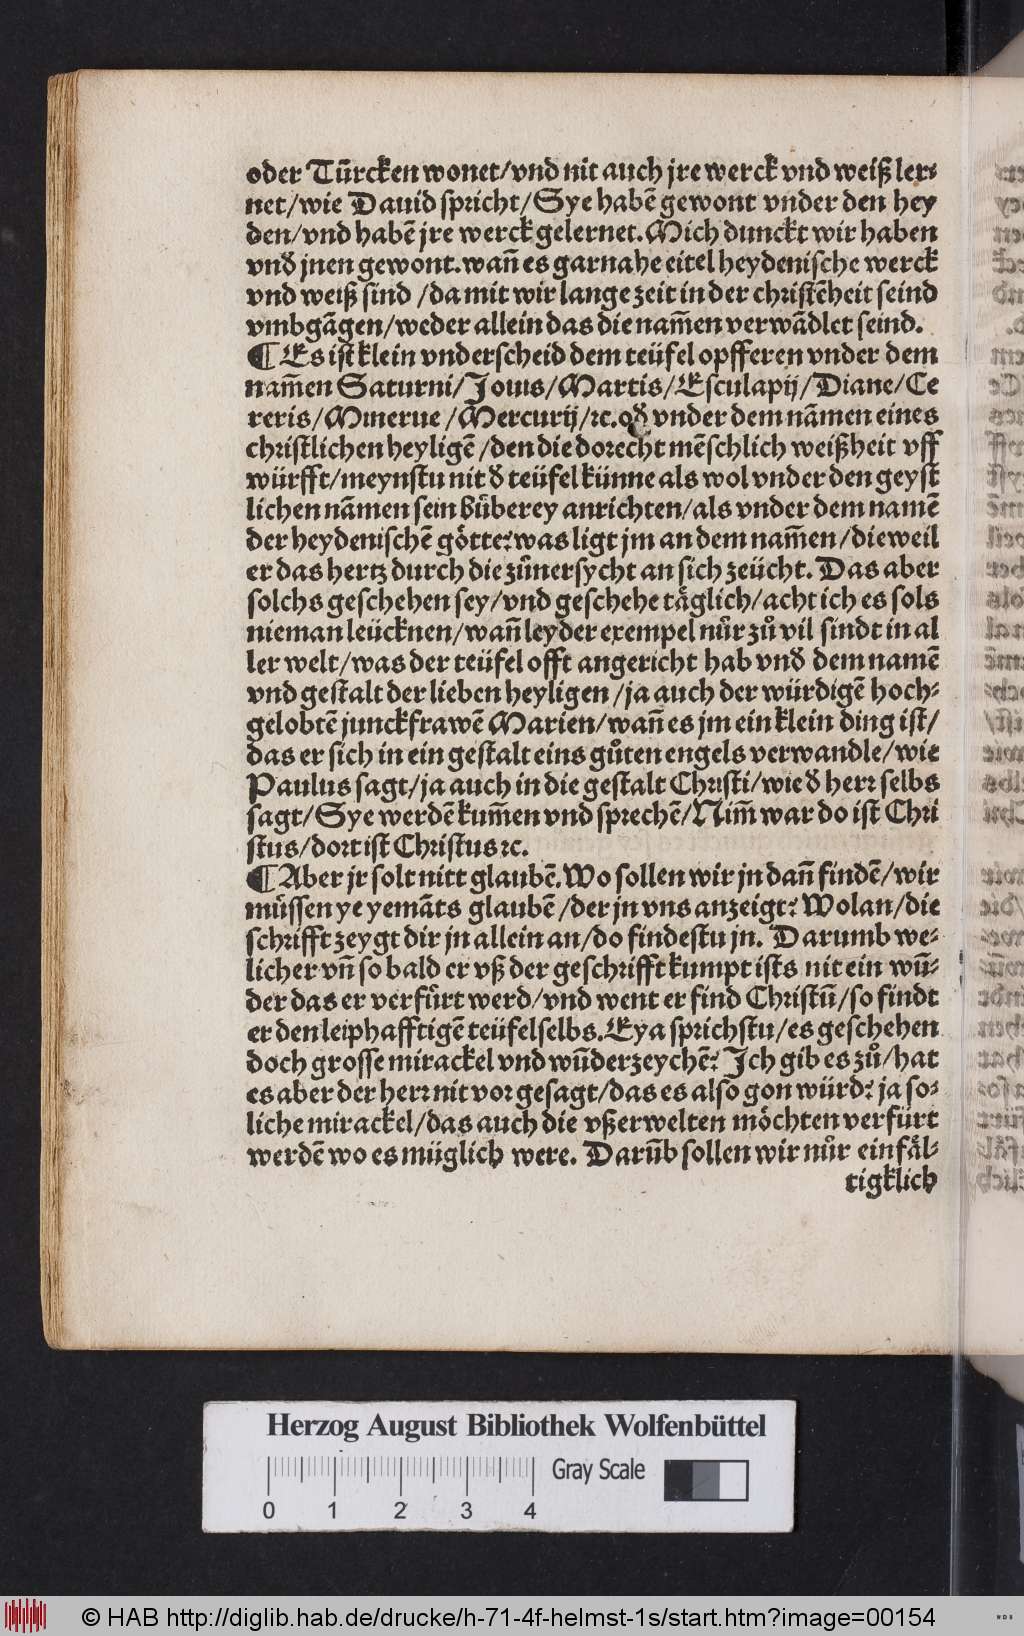 oder Tu᷑rcken wonet/vnd nit auch jre werck vnd weiß ler⸗
net/wie Dauid spricht/Sye habē gewont vnder den hey
den/vnd habē jre werck gelernet. Mich dunckt wir haben
vnđ jnen gewont. wañ es gar nahe eitel heydenische werck
vnd weiß sind /da mit wir lange zeit in der christēheit seind
vmbgāgen/weder allein das die nam̄en verwādlet seind.
¶ Es ist klein vnderscheid dem teüfel opfferen vnder dem
nam̄en Saturni/Jouis/Martis/Esculapij/Diane/Ce
reris/Minerue /Mercurij/ꝛc. ođ vnder dem nāmen eines
christlichen heyligē /den die dorecht mēschlich weißheit vff
würfft/meynstu nit đ teüfel künne als wol vnder den geyst
lichen nāmen sein bůberey anrichten/als vnder dem namē
der heydenischē götte: was ligt jm an dem nam̄en/die weil
er das hertz durch die zůuersycht an sich zeücht. Das aber
solchs geschehen sey/vnd geschehe täglich/acht ich es sols
nieman leücknen/wañ leyder exempel nůr zů vil sindt in al
ler welt/was der teüfel offt angericht hab vnđ dem namē
vnd gestalt der lieben heyligen /ja auch der würdigē hoch⸗
gelobtē junckfrawē Marien/wañ es jm ein klein ding ist/
das er sich in ein gestalt eins gůten engels verwandle/wie
Paulus sagt/ja auch in die gestalt Christi/wie đ herr selbs
sagt/Sye werdē kum̄en vnd sprechē/Nim̄ war do ist Chri
stus/dort ist Christus ꝛc.
¶ Aber jr solt nitt glaubē. Wo sollen wir jn dañ findē/wir
müssen ye yemāts glaubē /der jn vns anzeigt? Wolan/die
schrifft zeygt dir jn allein an/do findestu jn. Darumb we⸗
licher vñ so bald er vß der geschrifft kumpt ists nit ein wū⸗
der das er verfürt werd/vnd went er find Christū/so findt
er den leiphafftigē teüfel selbs. Eya sprichstu/es geschehen
doch grosse mirackel vnd wūderzeychē? Ich gib es zů/hat
es aber der herr nit vor gesagt/das es also gon würd? ja so⸗
liche mirackel/das auch die vßerwelten möchten verfürt
werdē wo es müglich were. Darūb sollen wir nůr einfäl⸗
tigklich
Herzog August Bibliothek Wolfenbüttel
Gray Scale
0 1 2 3 4
© HAB http://diglib.hab.de/drucke/h-71-4f-helmst-1s/start.htm?image=00154